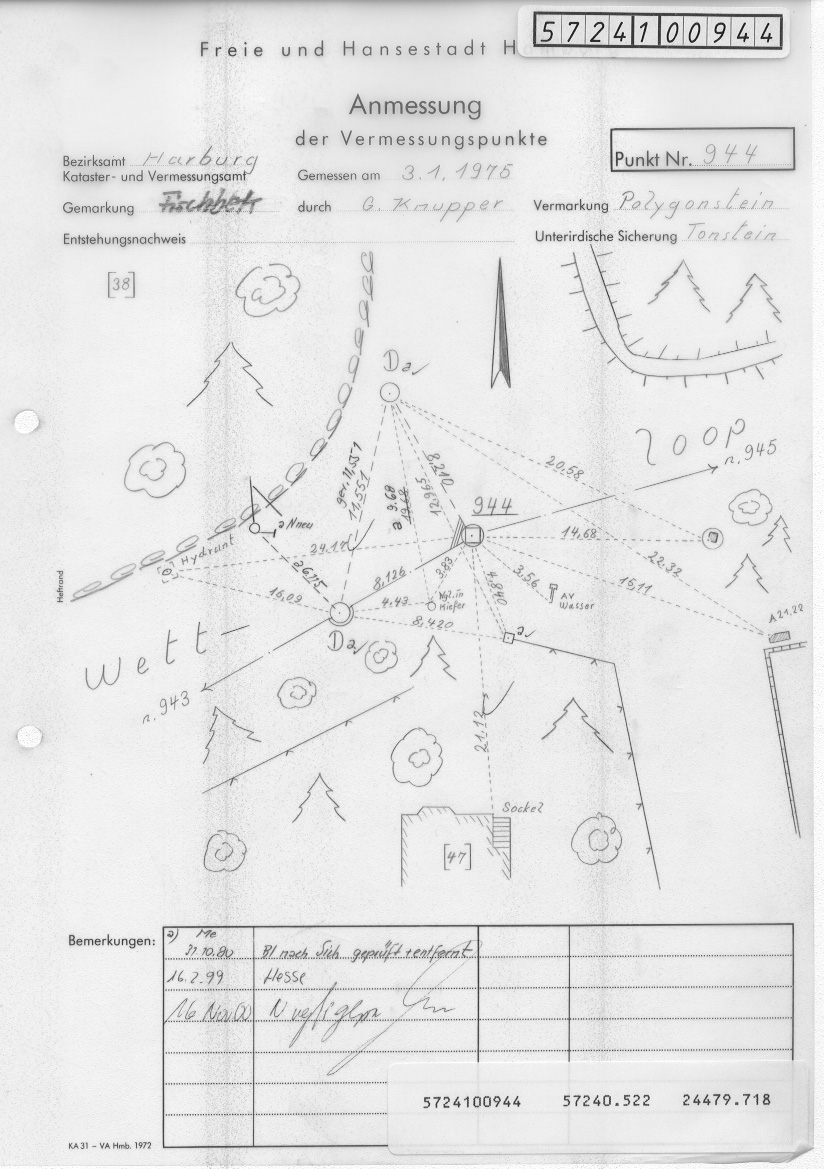 5724100944
Freie und Hansestadt H
Anmessung
der Vermessungspunkte
Bezirksamt Harburg
Kataster- und Vermessungsamt
Gemessen am 3.1.1975
Punkt Nr. 944
Gemarkung Fischbek
durch G. Knupper
Vermarkung Polygonstein
Entstehungsnachweis
Unterirdische Sicherung Tonstein
[38]
D a
loop
n. 945
gem. 11,551
11,551
9.68
a
8,210
20,58
944
a Nneu
Hydrant
24.17
14,68
22.32
2675
8,126
3.83
4.840
3,56
15,11
Heftrand
16,09
4.43
Ngl. in
Kiefer
AV
Wasser
A 21,22
8,420
D a
a
Wett-
n. 943
21.12
Sockel
[47]
Bemerkungen:
a) Me
31.10.80 Bl nach Sich. geprüft + entfernt
16.2.99 Hesse
16. Nov. 00 N
5724100944 57240.522 24479.718
KA 31 – VA Hmb. 1972